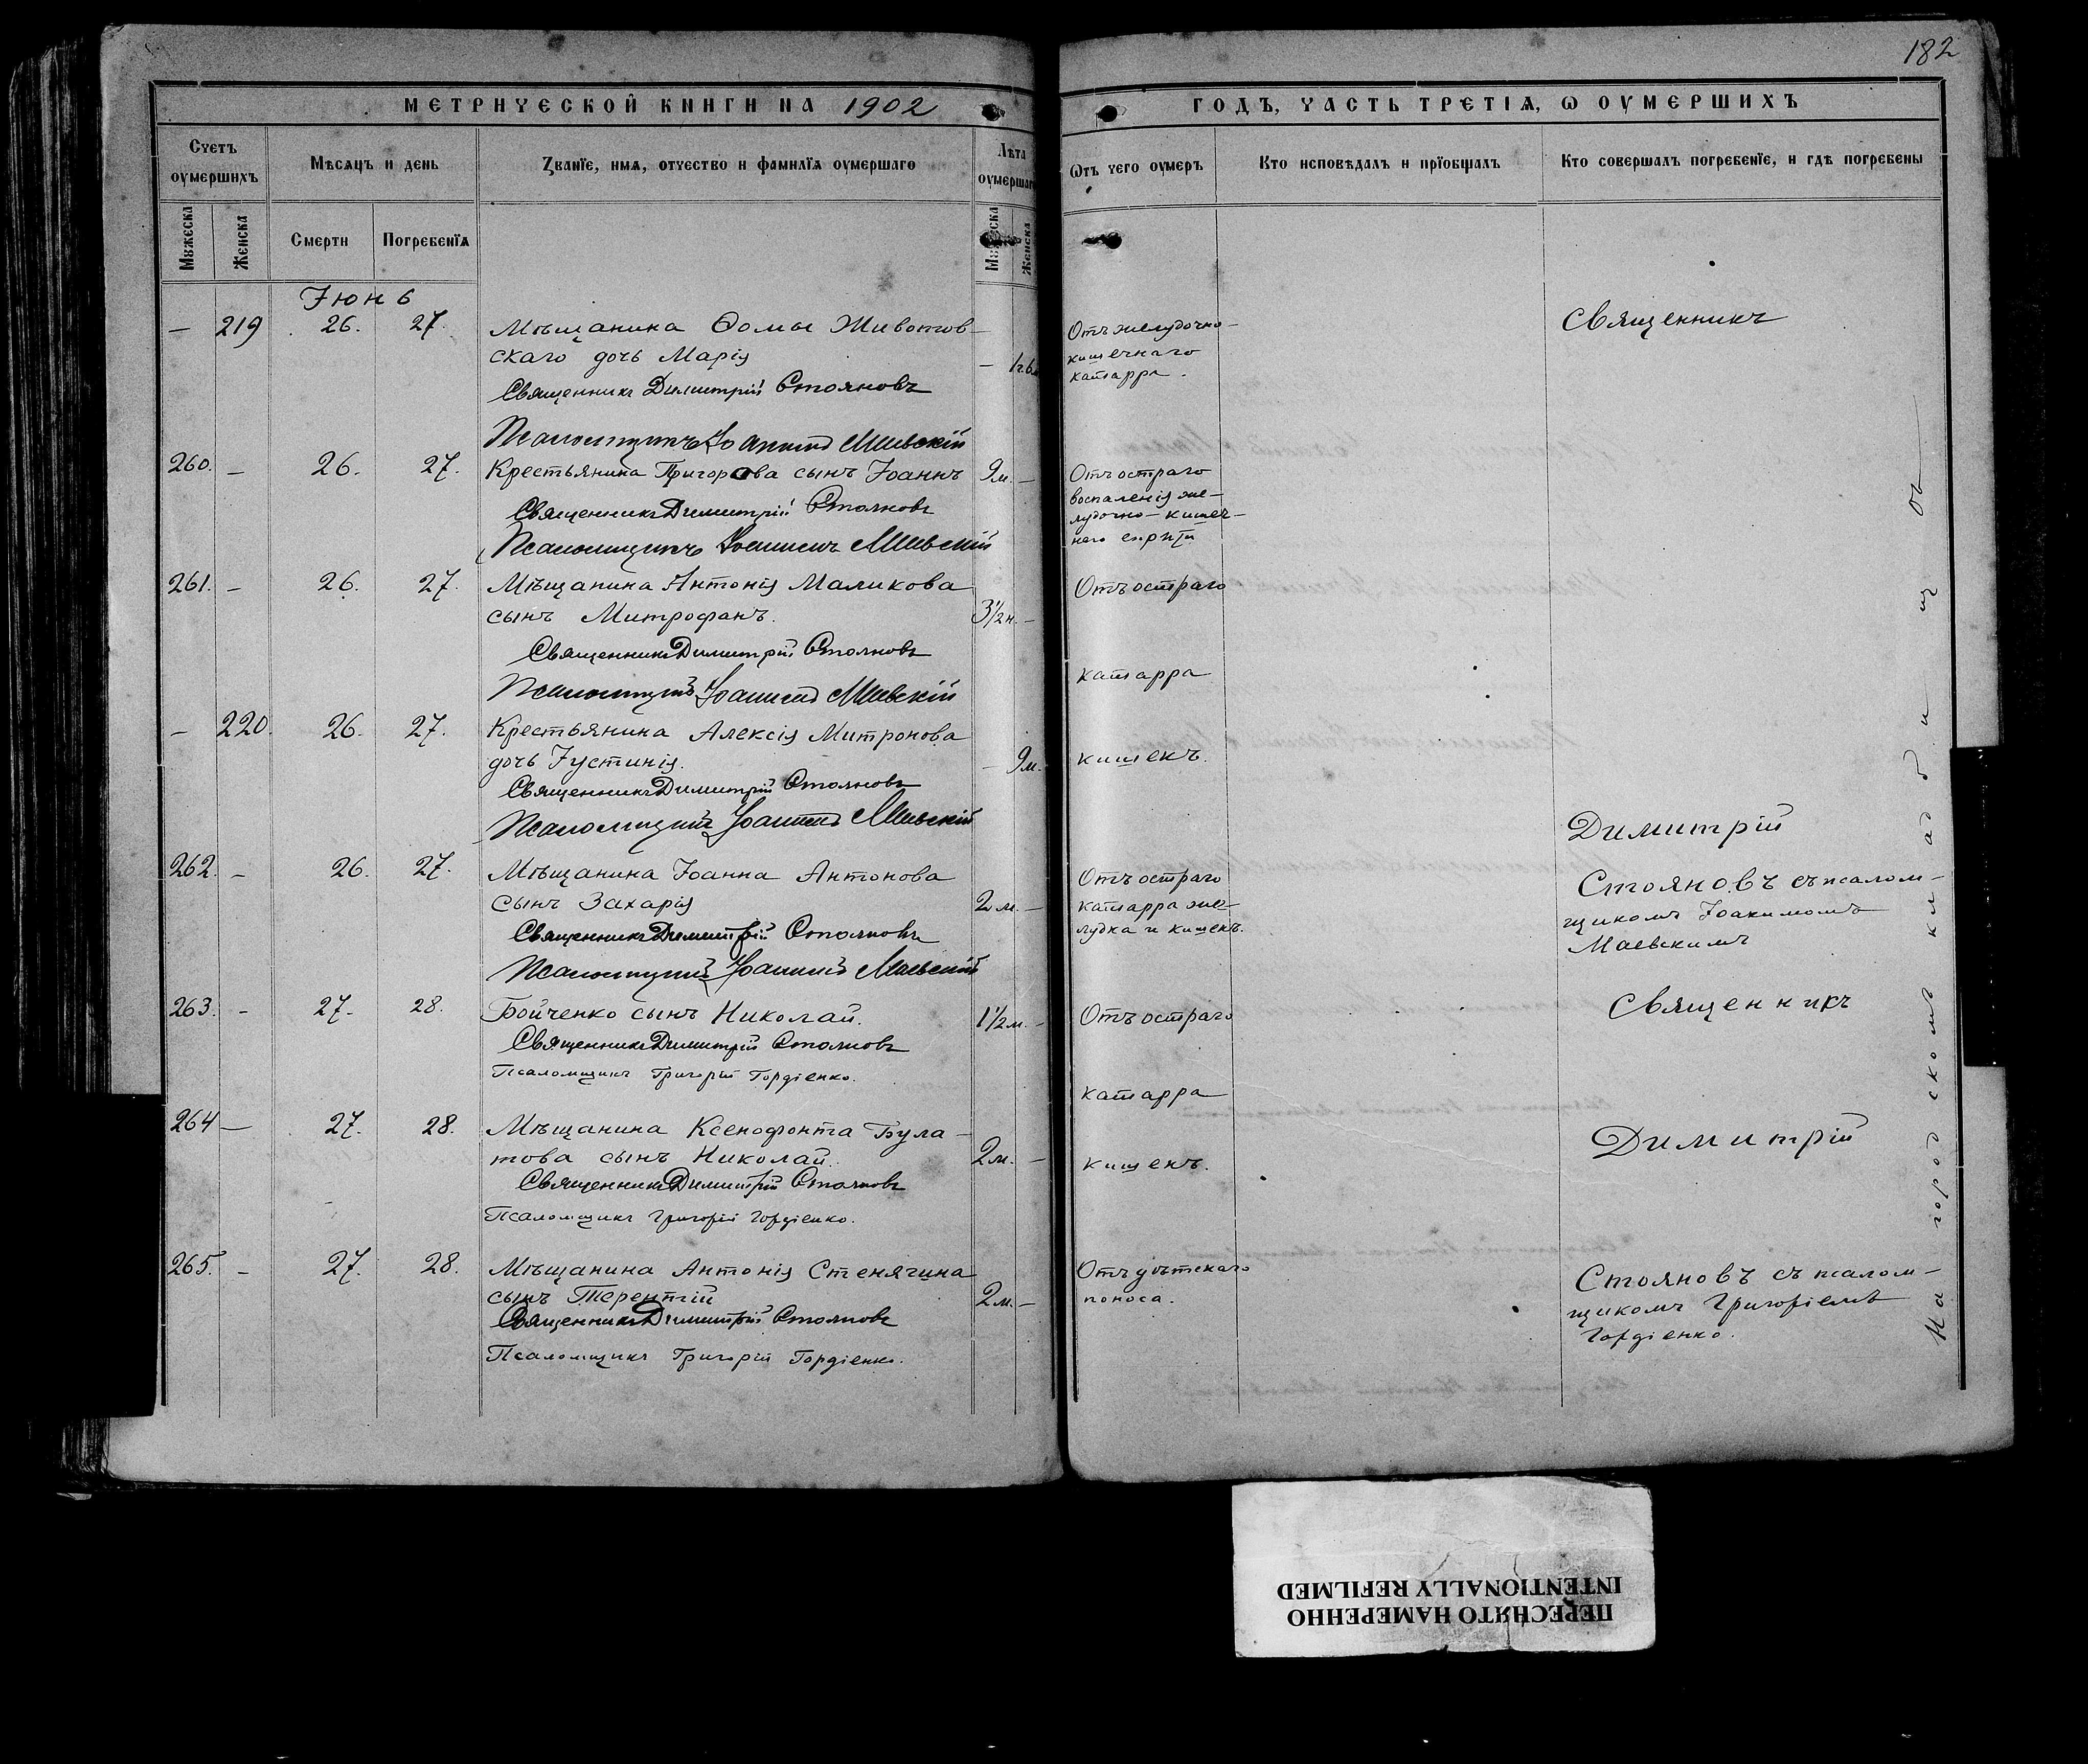 182
МЕТРИЧЕСКОЙ КНИГИ НА 1902
ГОДЪ, ЧАСТЬ ТРЕТІѦ, Ѡ ОУМЕРШИХЪ
Счетъ оумершихъ
Мѣсяцъ и день
Званїе, имѧ, отчество и фамилїѧ оумершаго
Лѣта оумершаго
Ѿтъ чего оумеръ
Кто исповѣдалъ и прїобщалъ
Кто совершалъ погребенїе, и гдѣ погребены
Мꙋжеска
Женска
Смерти
Погребенїѧ
Мꙋжеска
Женска
Іюнь
— 219 26. 27. Мѣщанина Ѳомы Животов-
скаго дочь Марія — 1 г. 6 м.
Священникъ Димитрій Стояновъ
Псаломщикъ Іоакимъ Маевскій
Отъ желудочно-
кишечнаго
катарра.
260. — 26. 27. Крестьянина Григорова сынъ Іоаннъ 9 м. —
Священникъ Димитрій Стояновъ
Псаломщикъ Іоакимъ Маевскій
Отъ остраго
воспаленія же-
лудочно-кишеч-
наго
261. — 26. 27. Мѣщанина Антонія Маликова
сынъ Митрофанъ. 3½ н. —
Священникъ Димитрій Стояновъ
Псаломщикъ Іоакимъ Маевскій
Отъ остраго
катарра
— 220. 26. 27. Крестьянина Алексія Митронова
дочь Іустинія. — 9 м.
Священникъ Димитрій Стояновъ
Псаломщикъ Іоакимъ Маевскій
кишекъ.
262. — 26. 27. Мѣщанина Іоанна Антонова
сынъ Захарія 2 м. —
Священникъ Димитрій Стояновъ
Псаломщикъ Іоакимъ Маевскій
Отъ остраго
катарра же-
лудка и кишекъ.
263. — 27. 28. Бойченко сынъ Николай. 1½ м. —
Священникъ Димитрій Стояновъ
Псаломщикъ Григорій Гордіенко.
Отъ остраго
катарра
264 — 27. 28. Мѣщанина Ксенофонта Була-
това сынъ Николай. 2 м. —
Священникъ Димитрій Стояновъ
Псаломщикъ Григорій Гордіенко.
кишекъ.
265. — 27. 28. Мѣщанина Антонія Стенягина
сынъ Терентій 2 м. —
Священникъ Димитрій Стояновъ
Псаломщикъ Григорій Гордіенко.
Отъ дѣтскаго
поноса.
Священникъ
Димитрій
Стояновъ съ псалом-
щикомъ Іоакимомъ
Маевскимъ
Священникъ
Димитрій
Стояновъ съ псалом-
щикомъ Григоріемъ
Гордіенко.
На городскомъ кладбищѣ
ПЕРЕСНЯТО НАМЕРЕННО
INTENTIONALLY REFILMED